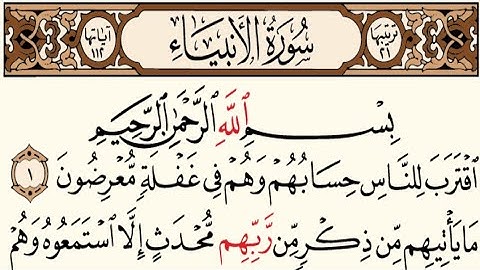 ترتيبها ٢١ سُورَةُ الأَنبِيَاءِ آياتها ١١٢
بِسْمِ اللَّهِ الرَّحْمَٰنِ الرَّحِيمِ
ٱقْتَرَبَ لِلنَّاسِ حِسَابُهُمْ وَهُمْ فِى غَفْلَةٍ مُّعْرِضُونَ ١
مَا يَأْتِيهِم مِّن ذِكْرٍ مِّن رَّبِّهِم مُّحْدَثٍ إِلَّا ٱسْتَمَعُوهُ وَهُمْ